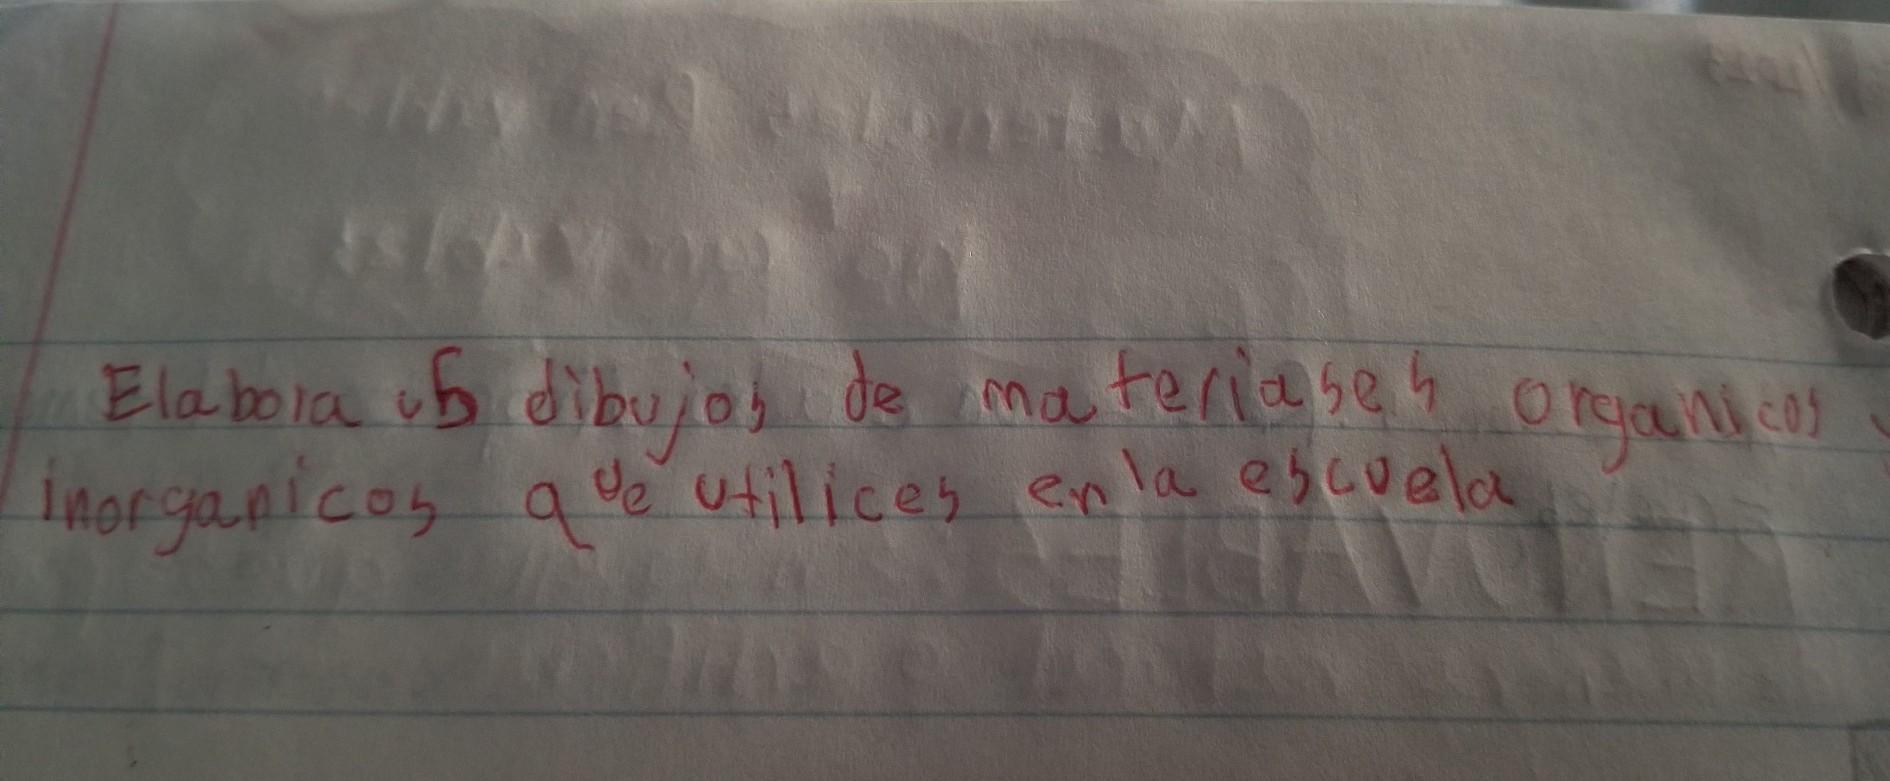 Elabora 5 dibujos de materiases organicos y
inorganicos que utilices en la escuela